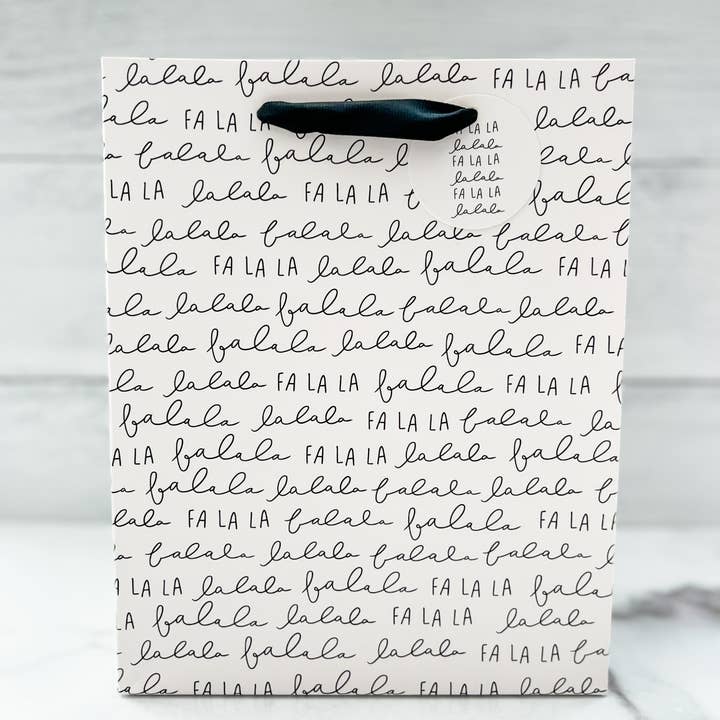 lalala falala lalala FA LA LA fa
lala FA LA LA lalala
falala falala l
LA LA lalala FA LA LA falala
la lalala falala lalala falala
lala FA LA LA lalala falala FA L
lalala lalala falala falala lalala
lalala falala lalala falala FA LA
la lalala FA LA LA falala FA LA LA f
falala lalala FA LA LA falala la
A LA falala FA LA LA lalala falala
la falala lalala falala lalala f
lala FA LA LA falala falala FA LA
la falala lalala falala falala
LA LA lalala falala FA LA LA fala
LA falala lalala FA LA LA lalala
lalala falala lalala FA LA LA fa
lala FA LA LA falala FA LA LA lalala
FA LA LA
lalala
FA LA LA
lalala
FA LA LA
lalala